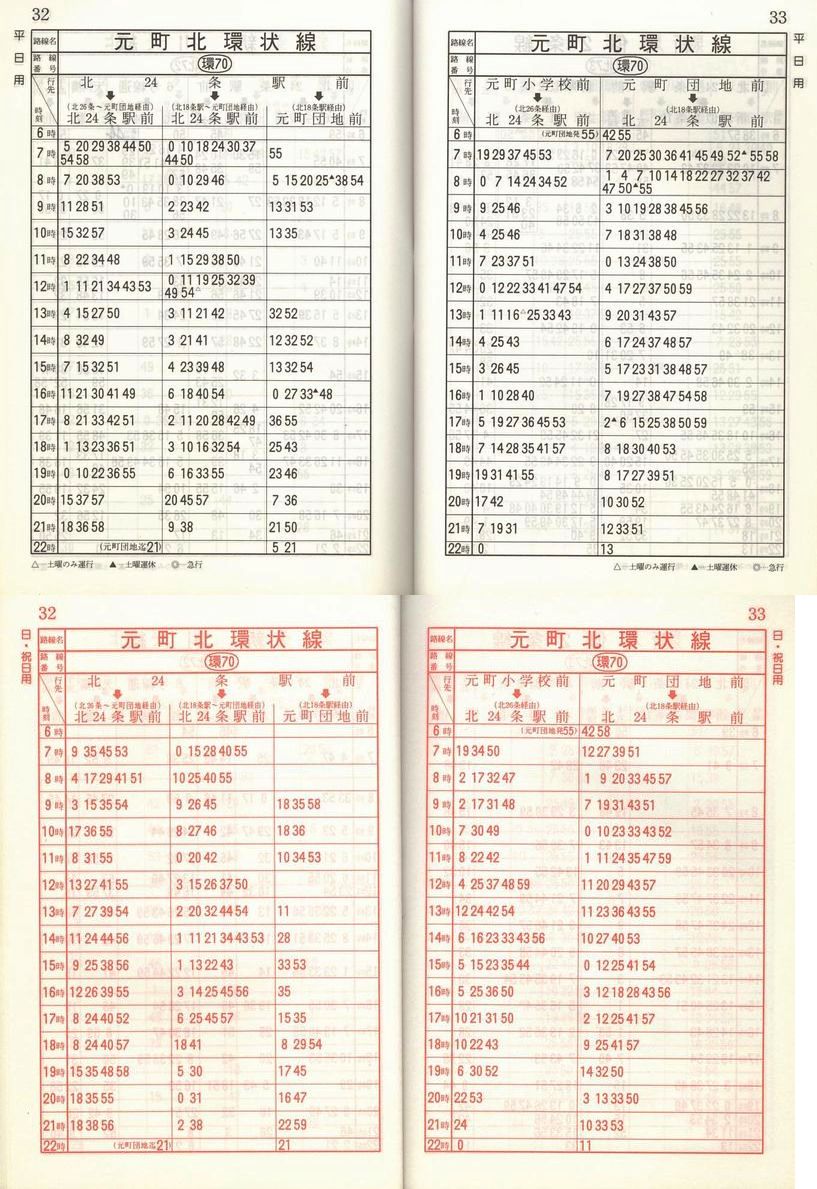 32
平日用
路線名 元町北環状線
路線番号 環70
行先 北24条駅前
時刻 (北26条~元町団地経由) (北18条駅~元町団地経由) (北18条駅経由)
北24条駅前 北24条駅前 元町団地前
6時
7時 5 20 29 38 44 50 0 10 18 24 30 37 55
54 58 44 50
8時 7 20 38 53 0 10 29 46 5 15 20 25▲38 54
9時 11 28 51 2 23 42 13 31 53
10時 15 32 57 3 24 45 13 35
11時 8 22 34 48 1 15 29 38 50
12時 1 11 21 34 43 53 0 11 19 25 32 39
49 54△
13時 4 15 27 50 3 11 21 42 32 52
14時 8 32 49 3 21 41 12 32 52
15時 7 15 32 51 4 23 39 48 13 32 54
16時 11 21 30 41 49 6 18 40 54 0 27 33▲48
17時 8 21 33 42 51 2 11 20 28 42 49 36 55
18時 1 13 23 36 51 3 10 16 32 54 25 43
19時 0 10 22 36 55 6 16 33 55 23 46
20時 15 37 57 20 45 57 7 36
21時 18 36 58 9 38 21 50
22時 (元町団地迄21) 5 21
△─土曜のみ運行 ▲─土曜運休 ◎─急行
33
平日用
路線名 元町北環状線
路線番号 環70
行先 元町小学校前 元町団地前
時刻 (北26条経由) (北18条駅経由)
北24条駅前 北24条駅前
6時 (元町団地発55) 42 55
7時 19 29 37 45 53 7 20 25 30 36 41 45 49 52▲ 55 58
8時 0 7 14 24 34 52 1 4 7 10 14 18 22 27 32 37 42
47 50▲55
9時 9 25 46 3 10 19 28 38 45 56
10時 4 25 46 7 18 31 38 48
11時 7 23 37 51 0 13 24 38 50
12時 0 12 22 33 41 47 54 4 17 27 37 50 59
13時 1 11 16△25 33 43 9 20 31 43 57
14時 4 25 43 6 17 24 37 48 57
15時 3 26 45 5 17 23 31 38 48 57
16時 1 10 28 40 7 19 27 38 47 54 58
17時 5 19 27 36 45 53 2▲ 6 15 25 38 50 59
18時 7 14 28 35 41 57 8 18 30 40 53
19時 19 31 41 55 8 17 27 39 51
20時 17 42 10 30 52
21時 7 19 31 12 33 51
22時 0 13
△─土曜のみ運行 ▲─土曜運休 ◎─急行
32
日・祝日用
路線名 元町北環状線
路線番号 環70
行先 北24条駅前
時刻 (北26条~元町団地経由) (北18条駅~元町団地経由) (北18条駅経由)
北24条駅前 北24条駅前 元町団地前
6時
7時 9 35 45 53 0 15 28 40 55
8時 4 17 29 41 51 10 25 40 55
9時 3 15 35 54 9 26 45 18 35 58
10時 17 36 55 8 27 46 18 36
11時 8 31 55 0 20 42 10 34 53
12時 13 27 41 55 3 15 26 37 50
13時 7 27 39 54 2 20 32 44 54 11
14時 11 24 44 56 1 11 21 34 43 53 28
15時 9 25 38 56 1 13 22 43 33 53
16時 12 26 39 55 3 14 25 45 56 35
17時 8 24 40 52 6 25 45 57 15 35
18時 8 24 40 57 18 41 8 29 54
19時 15 35 48 58 5 30 17 45
20時 18 35 55 0 31 16 47
21時 18 38 56 2 38 22 59
22時 (元町団地迄21) 21
33
日・祝日用
路線名 元町北環状線
路線番号 環70
行先 元町小学校前 元町団地前
時刻 (北26条経由) (北18条駅経由)
北24条駅前 北24条駅前
6時 (元町団地発55) 42 58
7時 19 34 50 12 27 39 51
8時 2 17 32 47 1 9 20 33 45 57
9時 2 17 31 48 7 19 31 43 51
10時 7 30 49 0 10 23 33 43 52
11時 8 22 42 1 11 24 35 47 59
12時 4 25 37 48 59 11 20 29 43 57
13時 12 24 42 54 11 23 36 43 55
14時 6 16 23 33 43 56 10 27 40 53
15時 5 15 23 35 44 0 12 25 41 54
16時 5 25 36 50 3 12 18 28 43 56
17時 10 21 31 50 2 12 25 41 57
18時 10 22 43 9 25 41 57
19時 6 30 52 14 32 50
20時 22 53 3 13 33 50
21時 24 10 33 53
22時 0 11